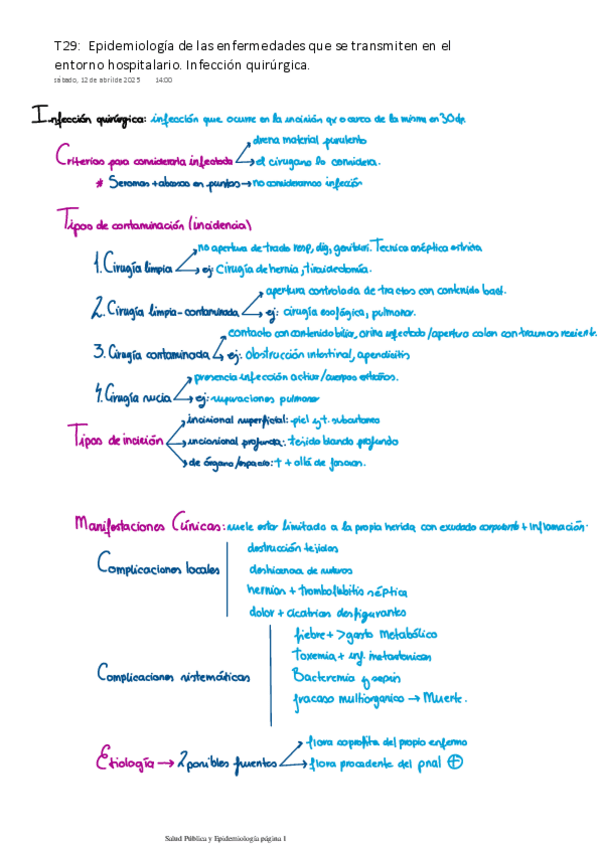 T29:  Epidemiología de las enfermedades que se transmiten en el
entorno hospitalario. Infección quirúrgica.
sábado, 12 de abril de 2025    14:00
Infección quirúrgica: infección que ocurre en la incisión qx o cerca de la misma en 30 dp.
drena material purulento
Criterios para considerarla infectada
el cirugano lo considera.
* Seromas + abscesos en puntos → no consideramos infección
Tipos de contaminación (incidencia)
no apertura de tracto resp, dig, genitour. Tecnica aséptica estricta
1. Cirugía limpia
ej: Cirugía de hernia, tiroidectomía.
apertura controlada de tractos con contenido bact.
2. Cirugía limpia-contaminada
ej: cirugía esofágica, pulmonar.
contacto con contenido bilis, orina infectada/apertura colon con traumas reciente.
3. Cirugía contaminada
ej: obstrucción intestinal, apendicitis
presencia infección activa/cuerpos extraños.
4. Cirugía sucia
ej: supuraciones pulmonar
incisional superficial: piel y t. subcutaneo
Tipos de incisión
incisional profunda: tejido blando profundo
de órgano/espacio: + allá de fascias.
Manifestaciones Clínicas: suele estar limitado a la propia herida, con exudado + inflamación.
destrucción tejidos
Complicaciones locales
dehiscencia de suturas
hernias + tromboflebitis séptica
dolor + cicatrices desfigurantes
fiebre + > gasto metabólico
Toxemia + inf. metastásicas
Complicaciones sistemáticas
Bacteremia y sepsis
fracaso multiorganico → Muerte.
flora saprofita del propio enfermo
Etiología → 2 posibles fuentes
flora procedente del pnal ⊕
Salud Pública y Epidemiología página 1